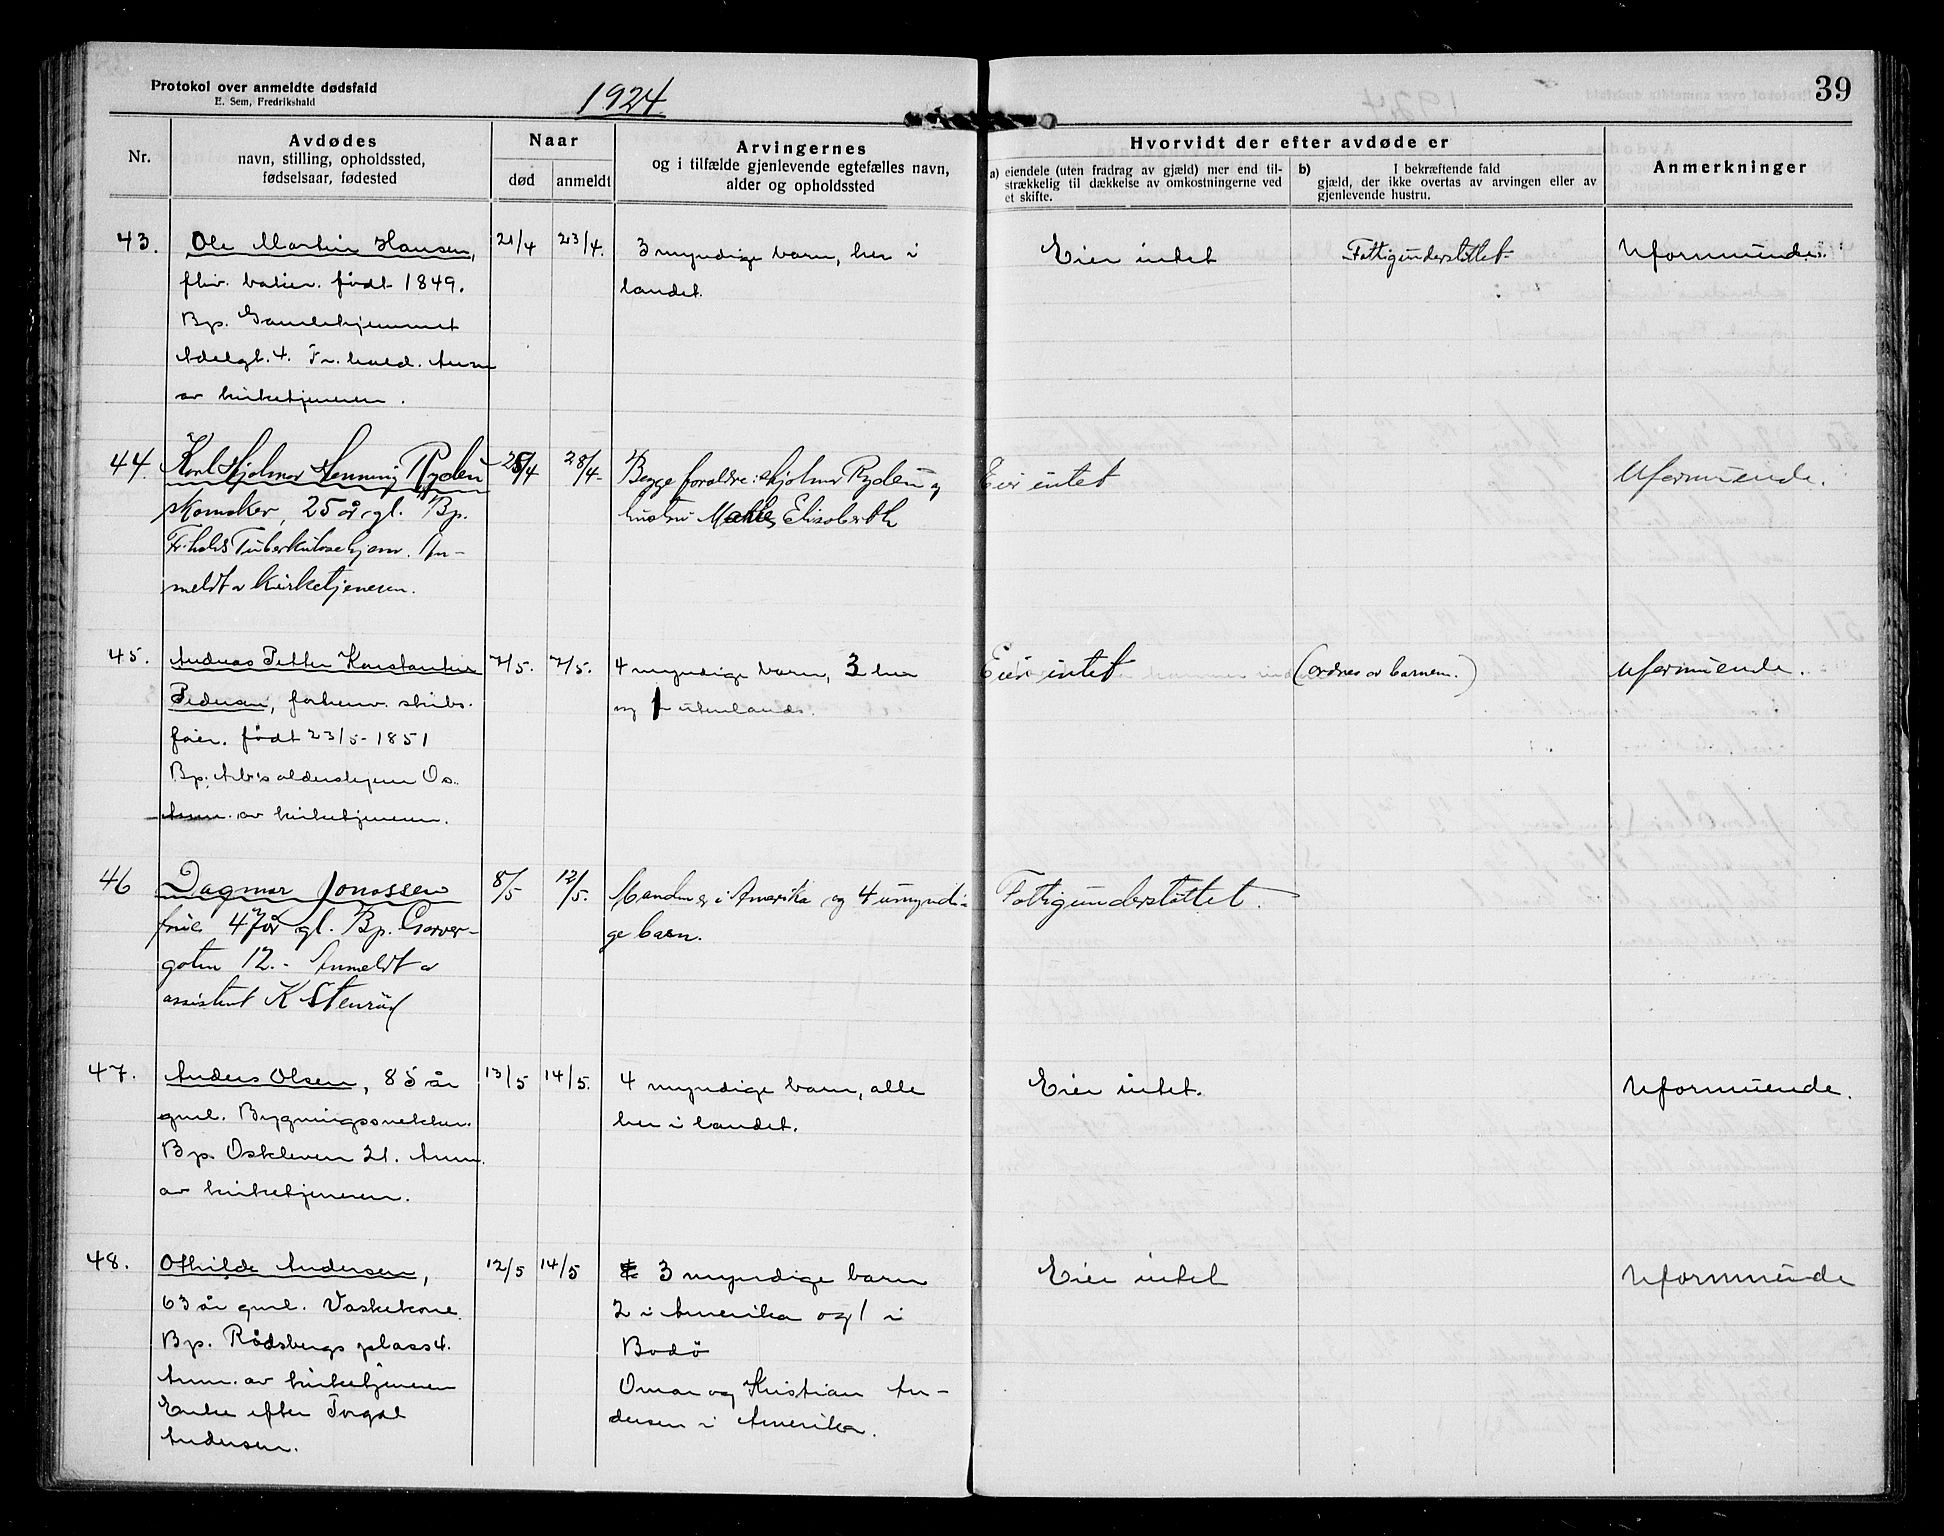 Protokol over anmeldte dødsfald
E. Sem, Fredrikshald
1924
39
Nr.
Avdødes
navn, stilling, opholdssted,
fødselsaar, fødested
Naar
død
anmeldt
Arvingernes
og i tilfælde gjenlevende egtefælles navn,
alder og opholdssted
Hvorvidt der efter avdøde er
a) eiendele (uten fradrag av gjæld) mer end til-
strækkelig til dækkelse av omkostningerne ved
et skifte.
b) I bekræftende fald
gjæld, der ikke overtas av arvingen eller av
gjenlevende hustru.
Anmerkninger
43. Ole Martin Hansen, 21/4 23/4. 3 myndige barn, her i Eier intet Fattigunderstøttet Uformuende.
fhv. født 1849. landet.
Bp. Gamlehjemmet
Adelgt. 4. Fr.hald. Anm
av kirketjeneren.
44. Karl Hjalmar Henning Rydèn 25/4 28/4- Begge foraldre: Hjalmar Rydèn og Eier intet Uformuende.
skomaker, 25 år gl. Bp. hustru Elisabeth
Fr.halds Tuberkulosehjem. An-
meldt a kirketjeneren.
45. Andreas Petter Konstantin 7/5. 7/5. 4 myndige barn, 3 her Eier intet (ordnes av barnem.) Uformuende.
Pedersen, forhenv. skibs- og 1 utenlands.
født 23/5-1851
Bp. Arb's aldershjem Os.
Anm. av kirketjeneren.
46 Dagmar Jonassen 8/5 12/5. Manden er i Amerika og 4 umyndi- Fattigunderstøttet.
frue 47 år gl. Bp. Garver- ge barn.
gaten 12.- Anmeldt a
assistent K Stenrød
47. Anders Olsen, 85 år 13/5 14/5. 4 myndige barn, alle Eier intet. Uformuende.
gml. Bygningssnekker. her i landet.
Bp. Oskleven 21. Anm.
av kirketjeneren.
48. Othilde Andersen, 12/5 14/5 3 myndige barn Eier intet Uformuende
63 år gml. Vaskekone 2 i Amerika og 1 i
Bp. Rødsbergs plass 4. Bodö
Anm. av kirketjeneren Omar og Kristian An-
Enke efter Torgal dersen i Amerika.
Andersen.